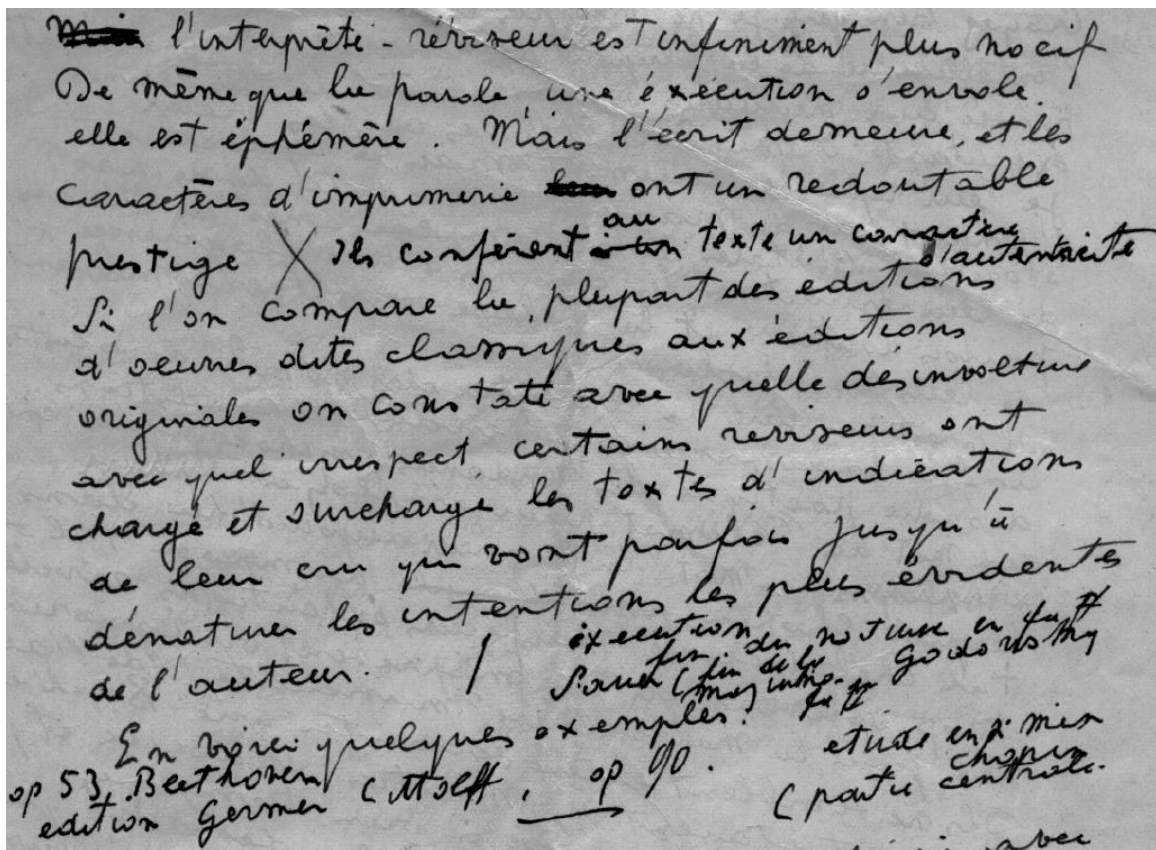 l'interprète - réviseur est infiniment plus nocif
De même que la parole, une éxécution s'envole.
elle est éphémère. Mais l'écrit demeure, et les
caractères d'imprimerie ont un redoutable
prestige X Ils confèrent au texte un caractère
d'autenticité
Si l'on compare la plupart des éditions
d'oeuvres dites classiques aux éditions
originales on constate avec quelle désinvolture
avec quel irrespect certains reviseurs ont
chargé et surchargé les textes d'indications
de leur cru qui vont parfois jusqu'à
dénaturer les intentions les plus évidentes
de l'auteur. /
éxecution du noturne en fa #
fin
Sauer (fin de la Godowsky
intro. fa #
En voici quelques exemples.
op 53. Beethoven op 90. etude en mineur
edition Germer Chopin
(partie centrale.
avec